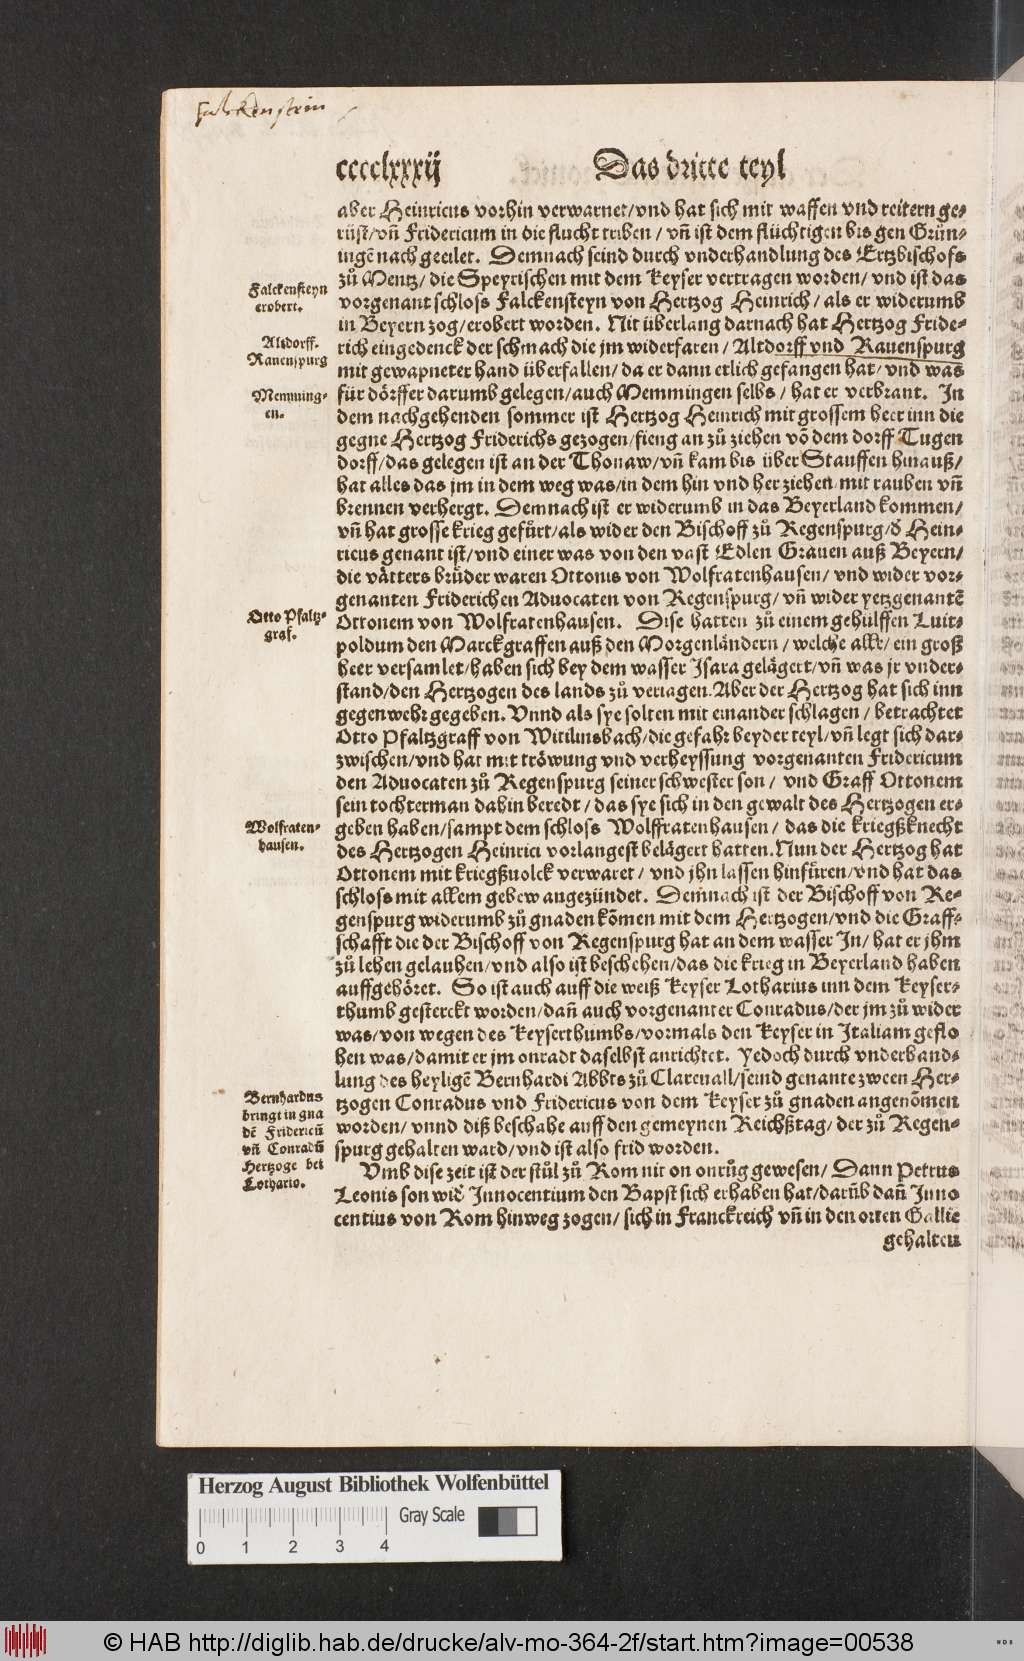 Falckenstein
cccclxxxij
Das dritte teyl
aber Heinricus vorhin verwarnet/vnd hat sich mit waffen vnd reitern ge-
rüst/vñ Fridericum in die flucht triben / vñ ist dem flüchtigen bis gen Grün-
ingẽ nach geeilet. Demnach seind durch vnderhandlung des Ertzbischofs
zů Mentz/ die Speyrischen mit dem Keyser vertragen worden/ vnd ist das
vorgenant schloss Falckensteyn von Hertzog Heinrich/ als er widerumb
in Beyern zog/erobert worden. Nit überlang darnach hat Hertzog Fride-
rich eingedenck der schmach die jm widerfaren / Altdorff vnd Rauenspurg
mit gewapneter hand überfallen/ da er dann etlich gefangen hat/ vnd was
für dörffer darumb gelegen/auch Memmingen selbs / hat er verbrant. In
dem nachgehenden sommer ist Hertzog Heinrich mit grossem heer inn die
gegne Hertzog Friderichs gezogen/fieng an zů ziehen võ dem dorff Tugen
dorff/das gelegen ist an der Thonaw/vñ kam bis über Stauffen hinauß/
hat alles das jm in dem weg was/in dem hin vnd her ziehen mit rauben vñ
brennen verhergt. Demnach ist er widerumb in das Beyerland kommen/
vñ hat grosse krieg gefürt/als wider den Bischoff zů Regenspurg/d̃ Hein-
ricus genant ist/vnd einer was von den vast Edlen Grauen auß Beyern/
die vätters brüder waren Ottonis von Wolfratenhausen/ vnd wider vor-
genanten Friderichen Aduocaten von Regenspurg/ vñ wider yetzgenantẽ
Ottonem von Wolfratenhausen. Dise hatten zů einem gehülffen Luit-
poldum den Marckgraffen auß den Morgenländern / welche alle/ ein groß
heer versamlet/haben sich bey dem wasser Isara gelägert/vñ was jr vnder-
stand/den Hertzogen des lands zů veriagen. Aber der Hertzog hat sich inn
gegenwehr gegeben. Vnnd als sye solten mit einander schlagen / betrachtet
Otto Pfaltzgraff von Witilinsbach/die gefahr beyder teyl/vñ legt sich dar-
zwischen/vnd hat mit tröwung vnd verheyssung vorgenanten Fridericum
den Aduocaten zů Regenspurg seiner schwester son / vnd Graff Ottonem
sein tochterman dahin beredt / das sye sich in den gewalt des Hertzogen er-
geben haben/sampt dem schloss Wolffratenhausen/ das die kriegßknecht
des Hertzogen Heinrici vorlangest belägert hatten. Nun der Hertzog hat
Ottonem mit kriegßuolck verwaret / vnd jhn lassen hinfüren/vnd hat das
schloss mit allem gebew angezündet. Demnach ist der Bischoff von Re-
genspurg widerumb zů gnaden kõmen mit dem Hertzogen/vnd die Graff-
schafft die der Bischoff von Regenspurg hat an dem wasser In/ hat er jhm
zů lehen gelauhen/vnd also ist beschehen/das die krieg in Beyerland haben
auffgehöret. So ist auch auff die weiß Keyser Lotharius inn dem Keyser-
thumb gesterckt worden/dañ auch vorgenanter Conradus/der jm zů wider
was/von wegen des Keyserthumbs/vormals den Keyser in Italiam geflo
hen was/damit er jm onradt daselbst anrichtet. Yedoch durch vnderhand-
lung des heyligẽ Bernhardi Abbts zů Clareuall/seind genante zween Her-
tzogen Conradus vnd Fridericus von dem Keyser zů gnaden angenõmen
worden/ vnnd diß beschahe auff den gemeynen Reichßtag/ der zů Regen-
spurg gehalten ward/vnd ist also frid worden.
Vmb dise zeit ist der stůl zů Rom nit on onrůg gewesen/ Dann Petrus
Leonis son wid̃ Innocentium den Bapst sich erhaben hat/darũb dañ Inno
centius von Rom hinweg zogen/ sich in Franckreich vñ in den orten Gallie
gehalten
Falckensteyn
erobert.
Altdorff.
Rauenspurg
Memming-
en.
Otto Pfaltz-
graf.
Wolfraten-
hausen.
Bernhardus
bringt in gna
dẽ Fridericũ
vñ Conradũ
Hertzoge bei
Lothario.
Herzog August Bibliothek Wolfenbüttel
Gray Scale
0 1 2 3 4
© HAB http://diglib.hab.de/drucke/alv-mo-364-2f/start.htm?image=00538